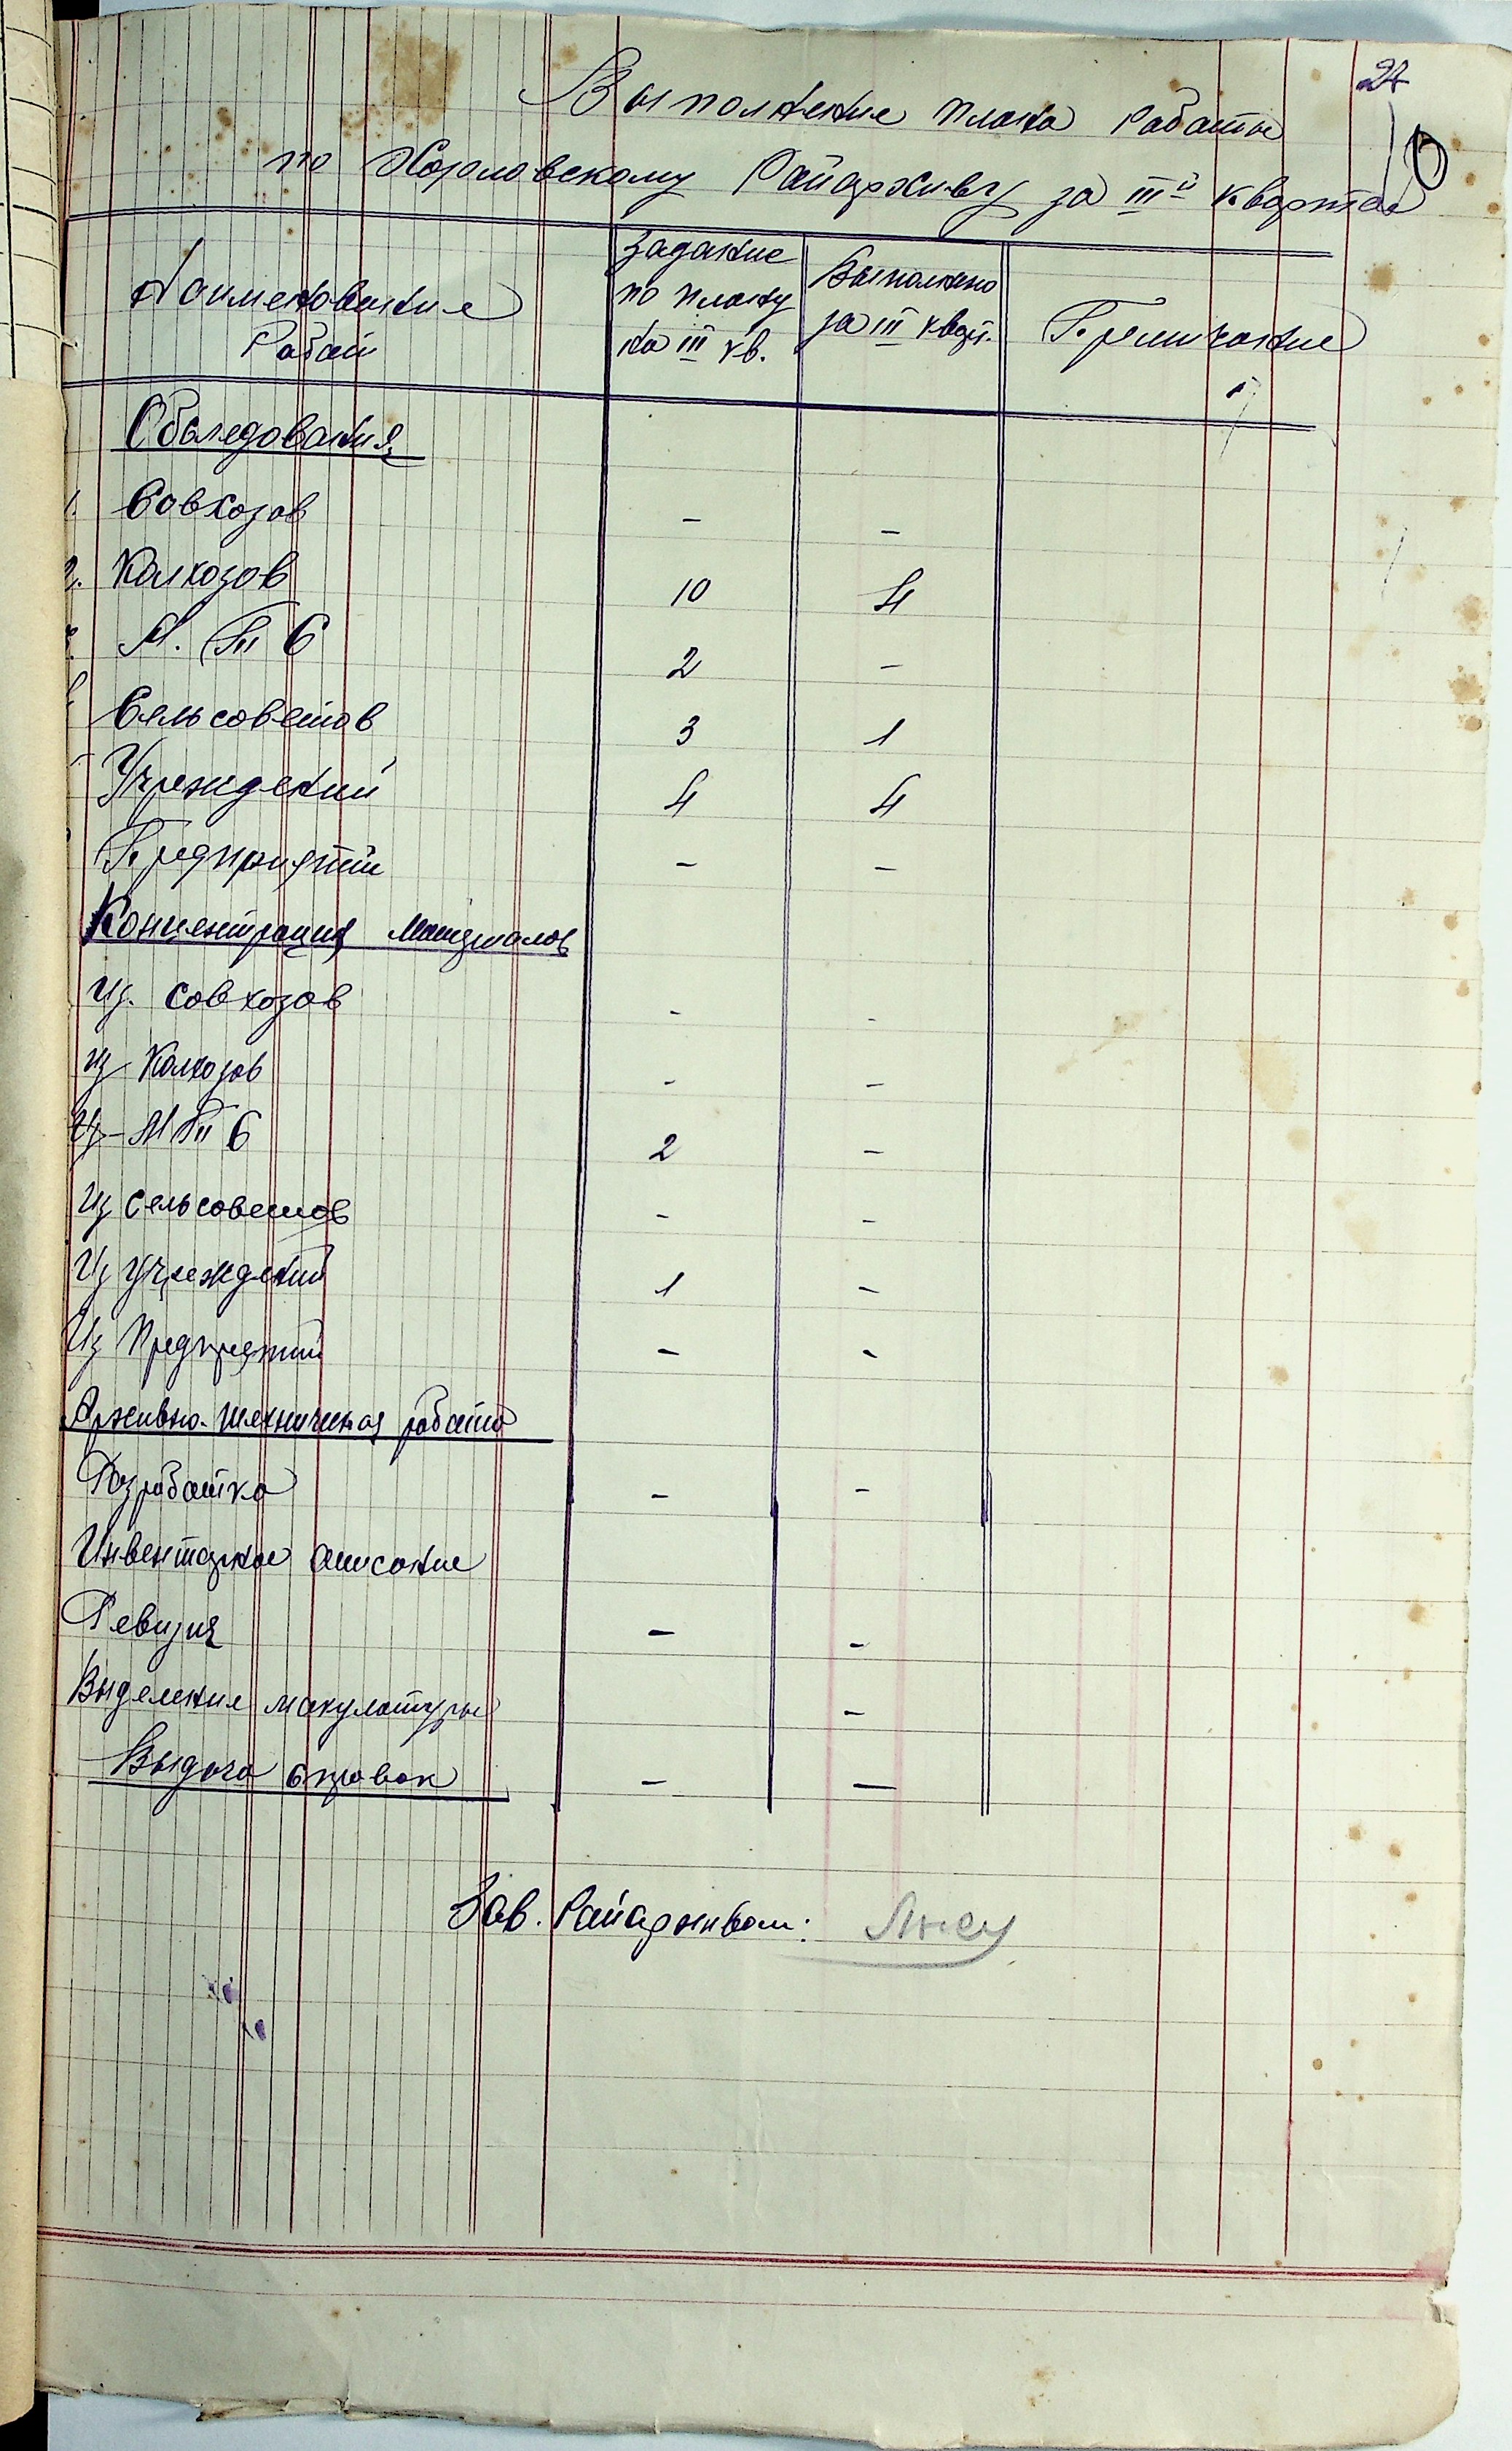 24
Выполнение плана работы
по Хорловскому Райархиву за III й квартал
Наименование
Работ
Задание
по плану
на III кв.
Выполнено
за III кварт.
Примечание
Обследования
1. Совхозов - -
2. Колхозов 10 4
М.Т.С 2 -
Сельсоветов 3 1
Учреждений 4 4
Предприятий - -
Концентрация материалов
Из совхозов - -
из Колхозов - -
Из - МТС 2 -
Из сельсоветов - -
Из учреждений 1 -
Из Предприятий - -
Архивно-техническая работа
Разработка - -
Инвентарное описание
Ревизия - -
Выделение макулатуры -
Выдача справок - -
Зав. Райархивом: